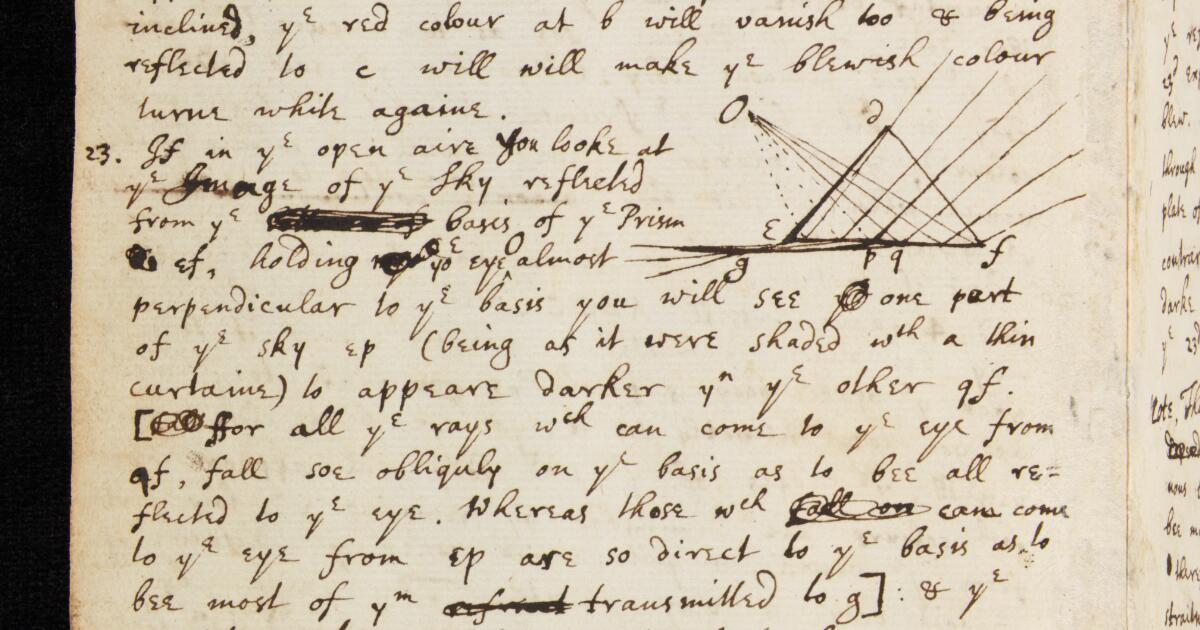 inclined, yᵉ red colour at b will vanish too & being
reflected to c will will make yᵉ blewish colour
turne white againe.
23. If in yᵉ open aire you looke at
yᵉ Image of yᵉ sky reflected
from yᵉ basis of yᵉ Prism
ef, holding yoʳ eye O almost
perpendicular to yᵉ basis you will see one part
of yᵉ sky ep (being as it were shaded wᵗʰ a thin
curtaine) to appeare darker yⁿ yᵉ other qf.
[ffor all yᵉ rays wᶜʰ can come to yᵉ eye from
qf, fall soe obliquly on yᵉ basis as to bee all re=
flected to yᵉ eye. Whereas those wᶜʰ fall on can come
to yᵉ eye from ep are so direct to yᵉ basis as to
bee most of yᵐ transmitted to g]: & yᵉ
O
d
e
g
p q
f
blew.
through
plate of
darke
yᵉ 23
Note,
bee